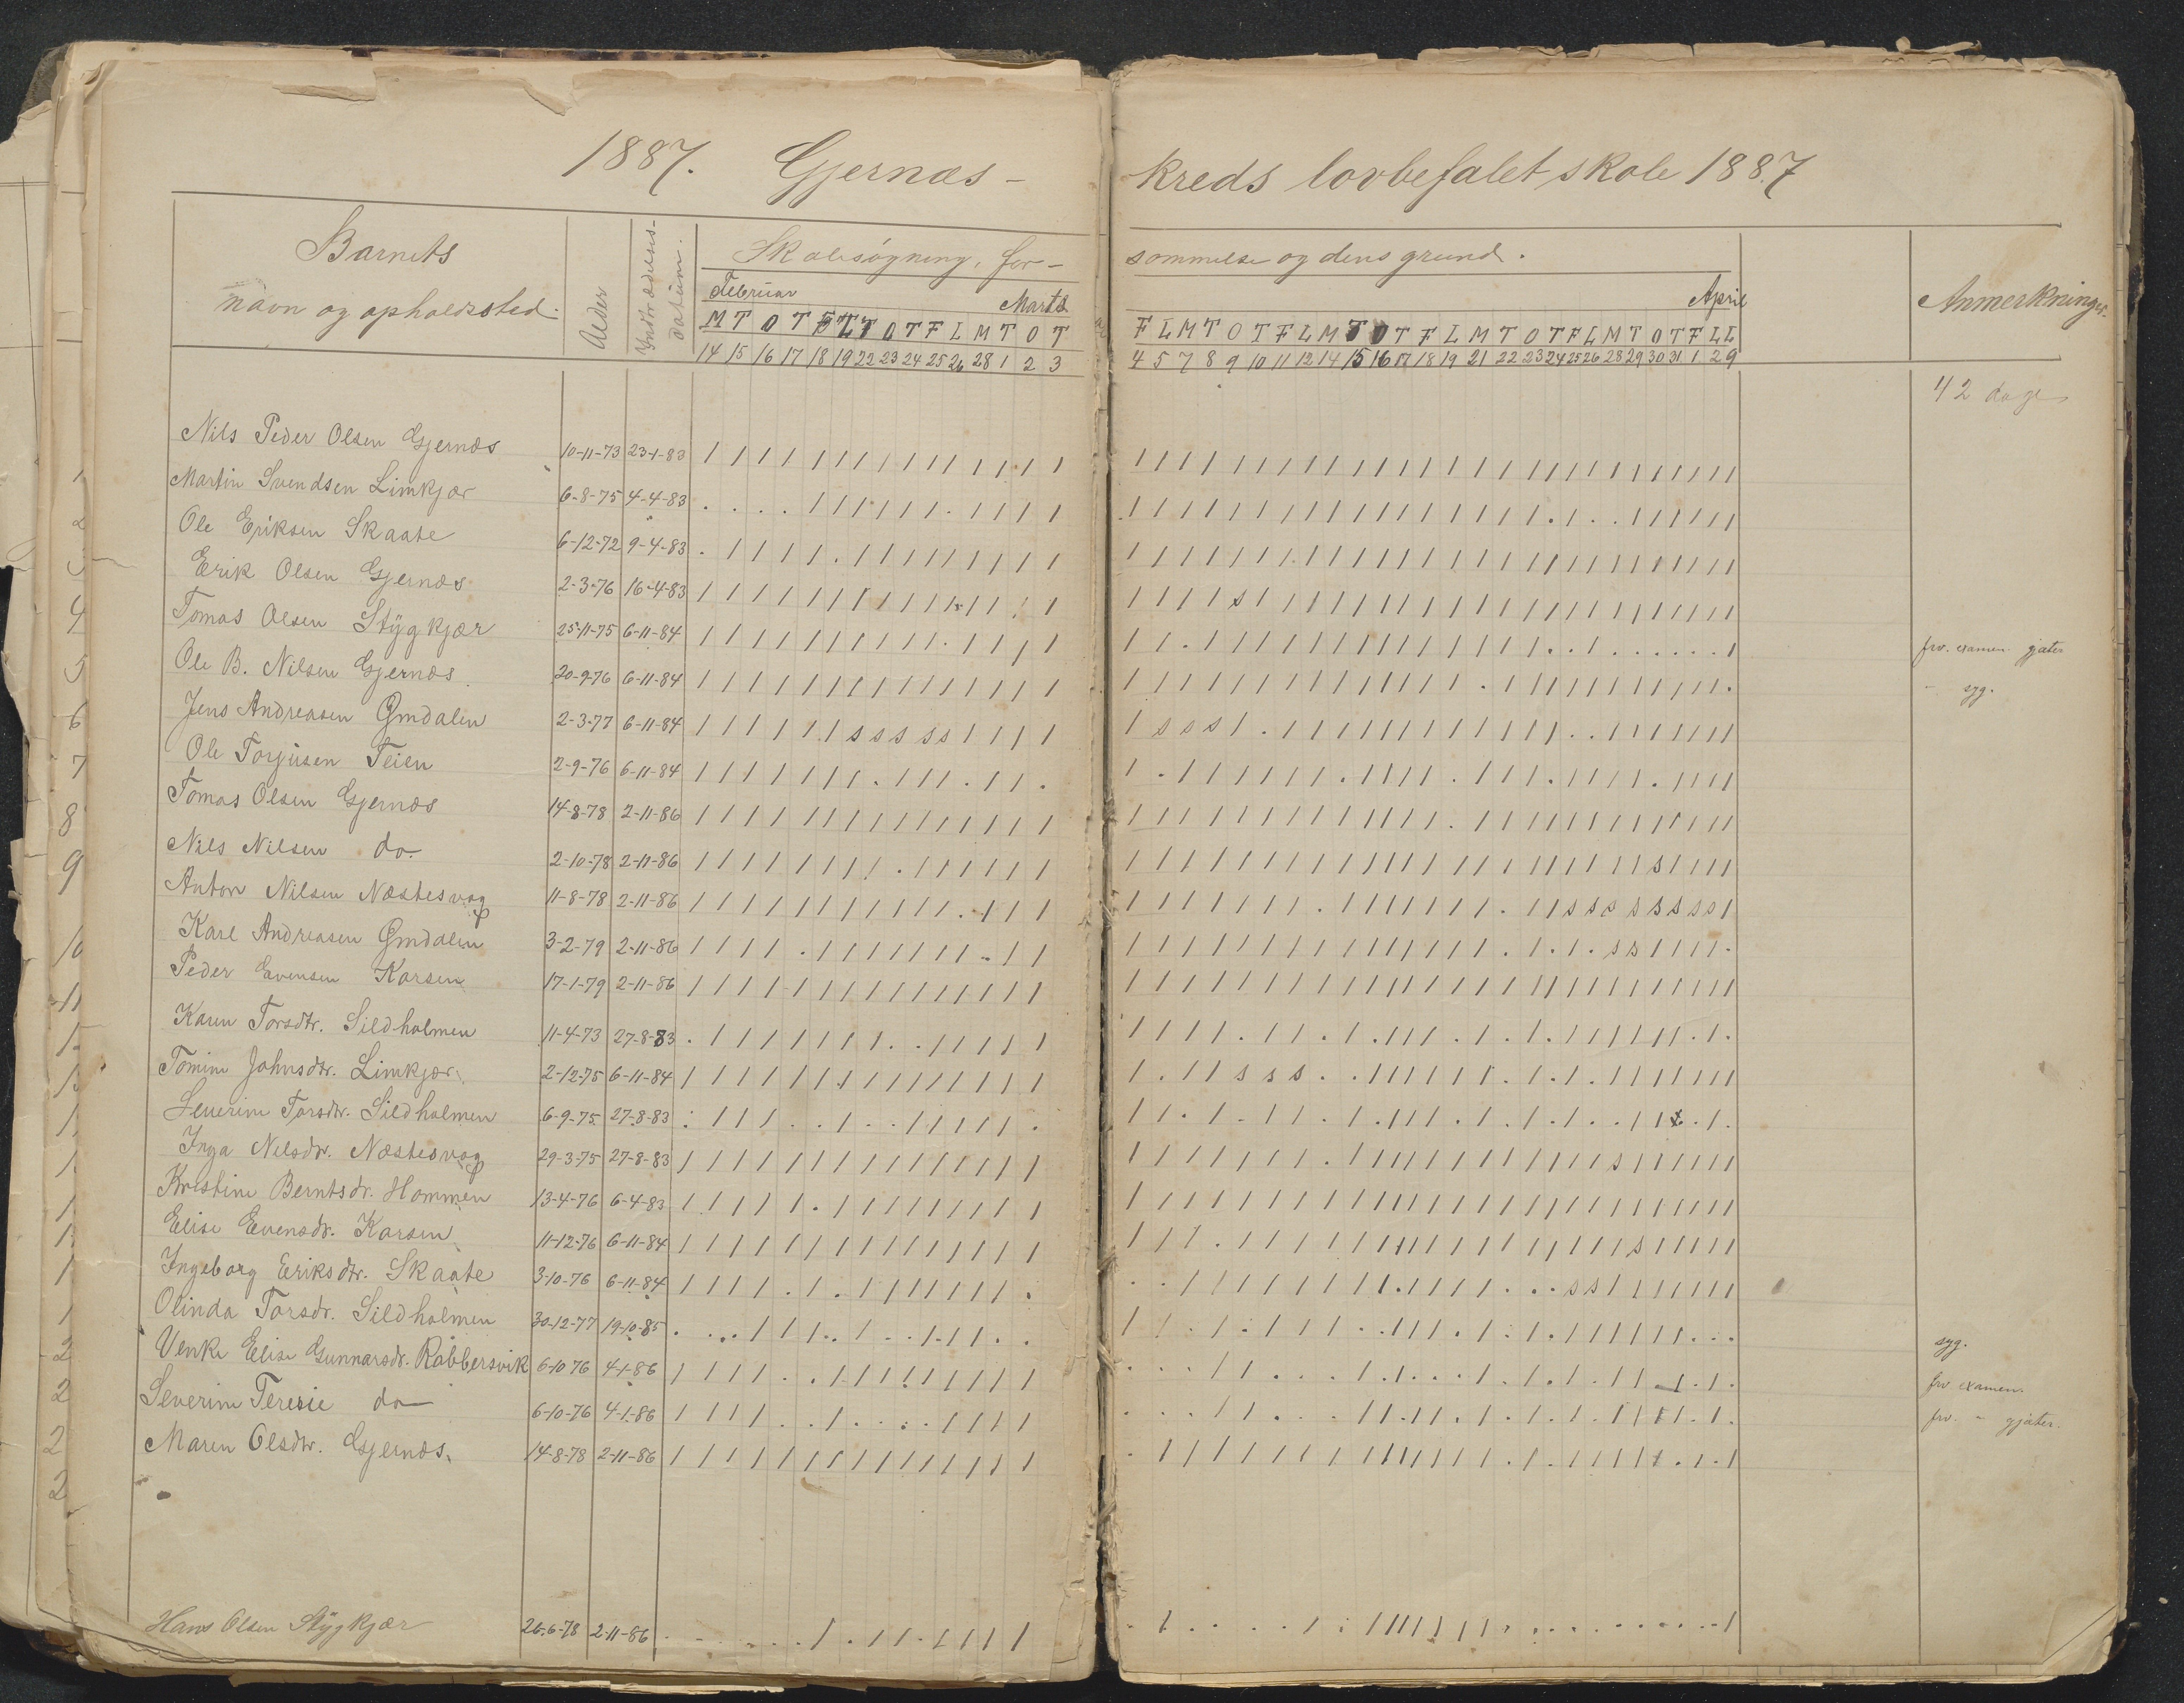 1887. Gjernæs-
kreds lovbefalet skole 1887
Barnets
navn og opholdssted.
Alder
Indtrædelses-
datum.
Skolesøgning, for-
sømmelse og dens grund.
Anmerkninger.
Februar Marts
April
M T O T F L T O T F L M T O T
F L M T O T F L M T O T F L M T O T F L M T O T F L L
14 15 16 17 18 19 22 23 24 25 26 28 1 2 3
4 5 7 8 9 10 11 12 14 15 16 17 18 19 21 22 23 24 25 26 28 29 30 31 1 2 9
42 dage
Nils Peder Olsen Gjernæs 10-11-73 23-1-83
Martin Svendsen Limkjær 6-8-75 4-4-83
Ole Eriksen Skaate 6-12-72 9-4-83
Erik Olsen Gjernæs 2-3-76 16-4-83
Tomas Olsen Stÿgkjær 25-11-75 6-11-84 frv. examen gjæter
Ole B. Nilsen Gjernæs 20-9-76 6-11-84 - syg.
Jens Andreasen Gmdalen 2-3-77 6-11-84
Ole Torjusen Teien 2-9-76 6-11-84
Tomas Olsen Gjernæs 14-8-78 2-11-86
Nils Nilsen do. 2-10-78 2-11-86
Anton Nilsen Næstesvog 11-8-78 2-11-86
Karl Andreasen Gmdalen 3-2-79 2-11-86
Peder Evensen Karsen 17-1-79 2-11-86
Karen Torsdtr. Sildholmen 11-4-73 27-8-83
Tomine Johnsdtr. Limkjær 2-12-75 6-11-84
Severine Torsdtr. Sildholmen 6-9-75 27-8-83
Inga Nilsdtr. Næstesvog 29-3-75 27-8-83
Kristine Berntsdr. Hommen 13-4-76 6-4-83
Elise Evensdr. Karsen 11-12-76 6-11-84
Ingeborg Eriksdtr. Skaate 3-10-76 6-11-84
Olinda Torsdr. Sildholmen 30-12-77 19-10-85 syg.
Venke Elise Gunnarsdr. Rabbersvik 6-10 76 4-1-86 frv examen.
Severine Teresie do 6-10-76 4-1-86 frv. - gjæter.
Maren Olsdtr. Gjernæs. 14-8-78 2-11-86
Hans Olsen Stÿgkjær 26-6-78 2-11-86